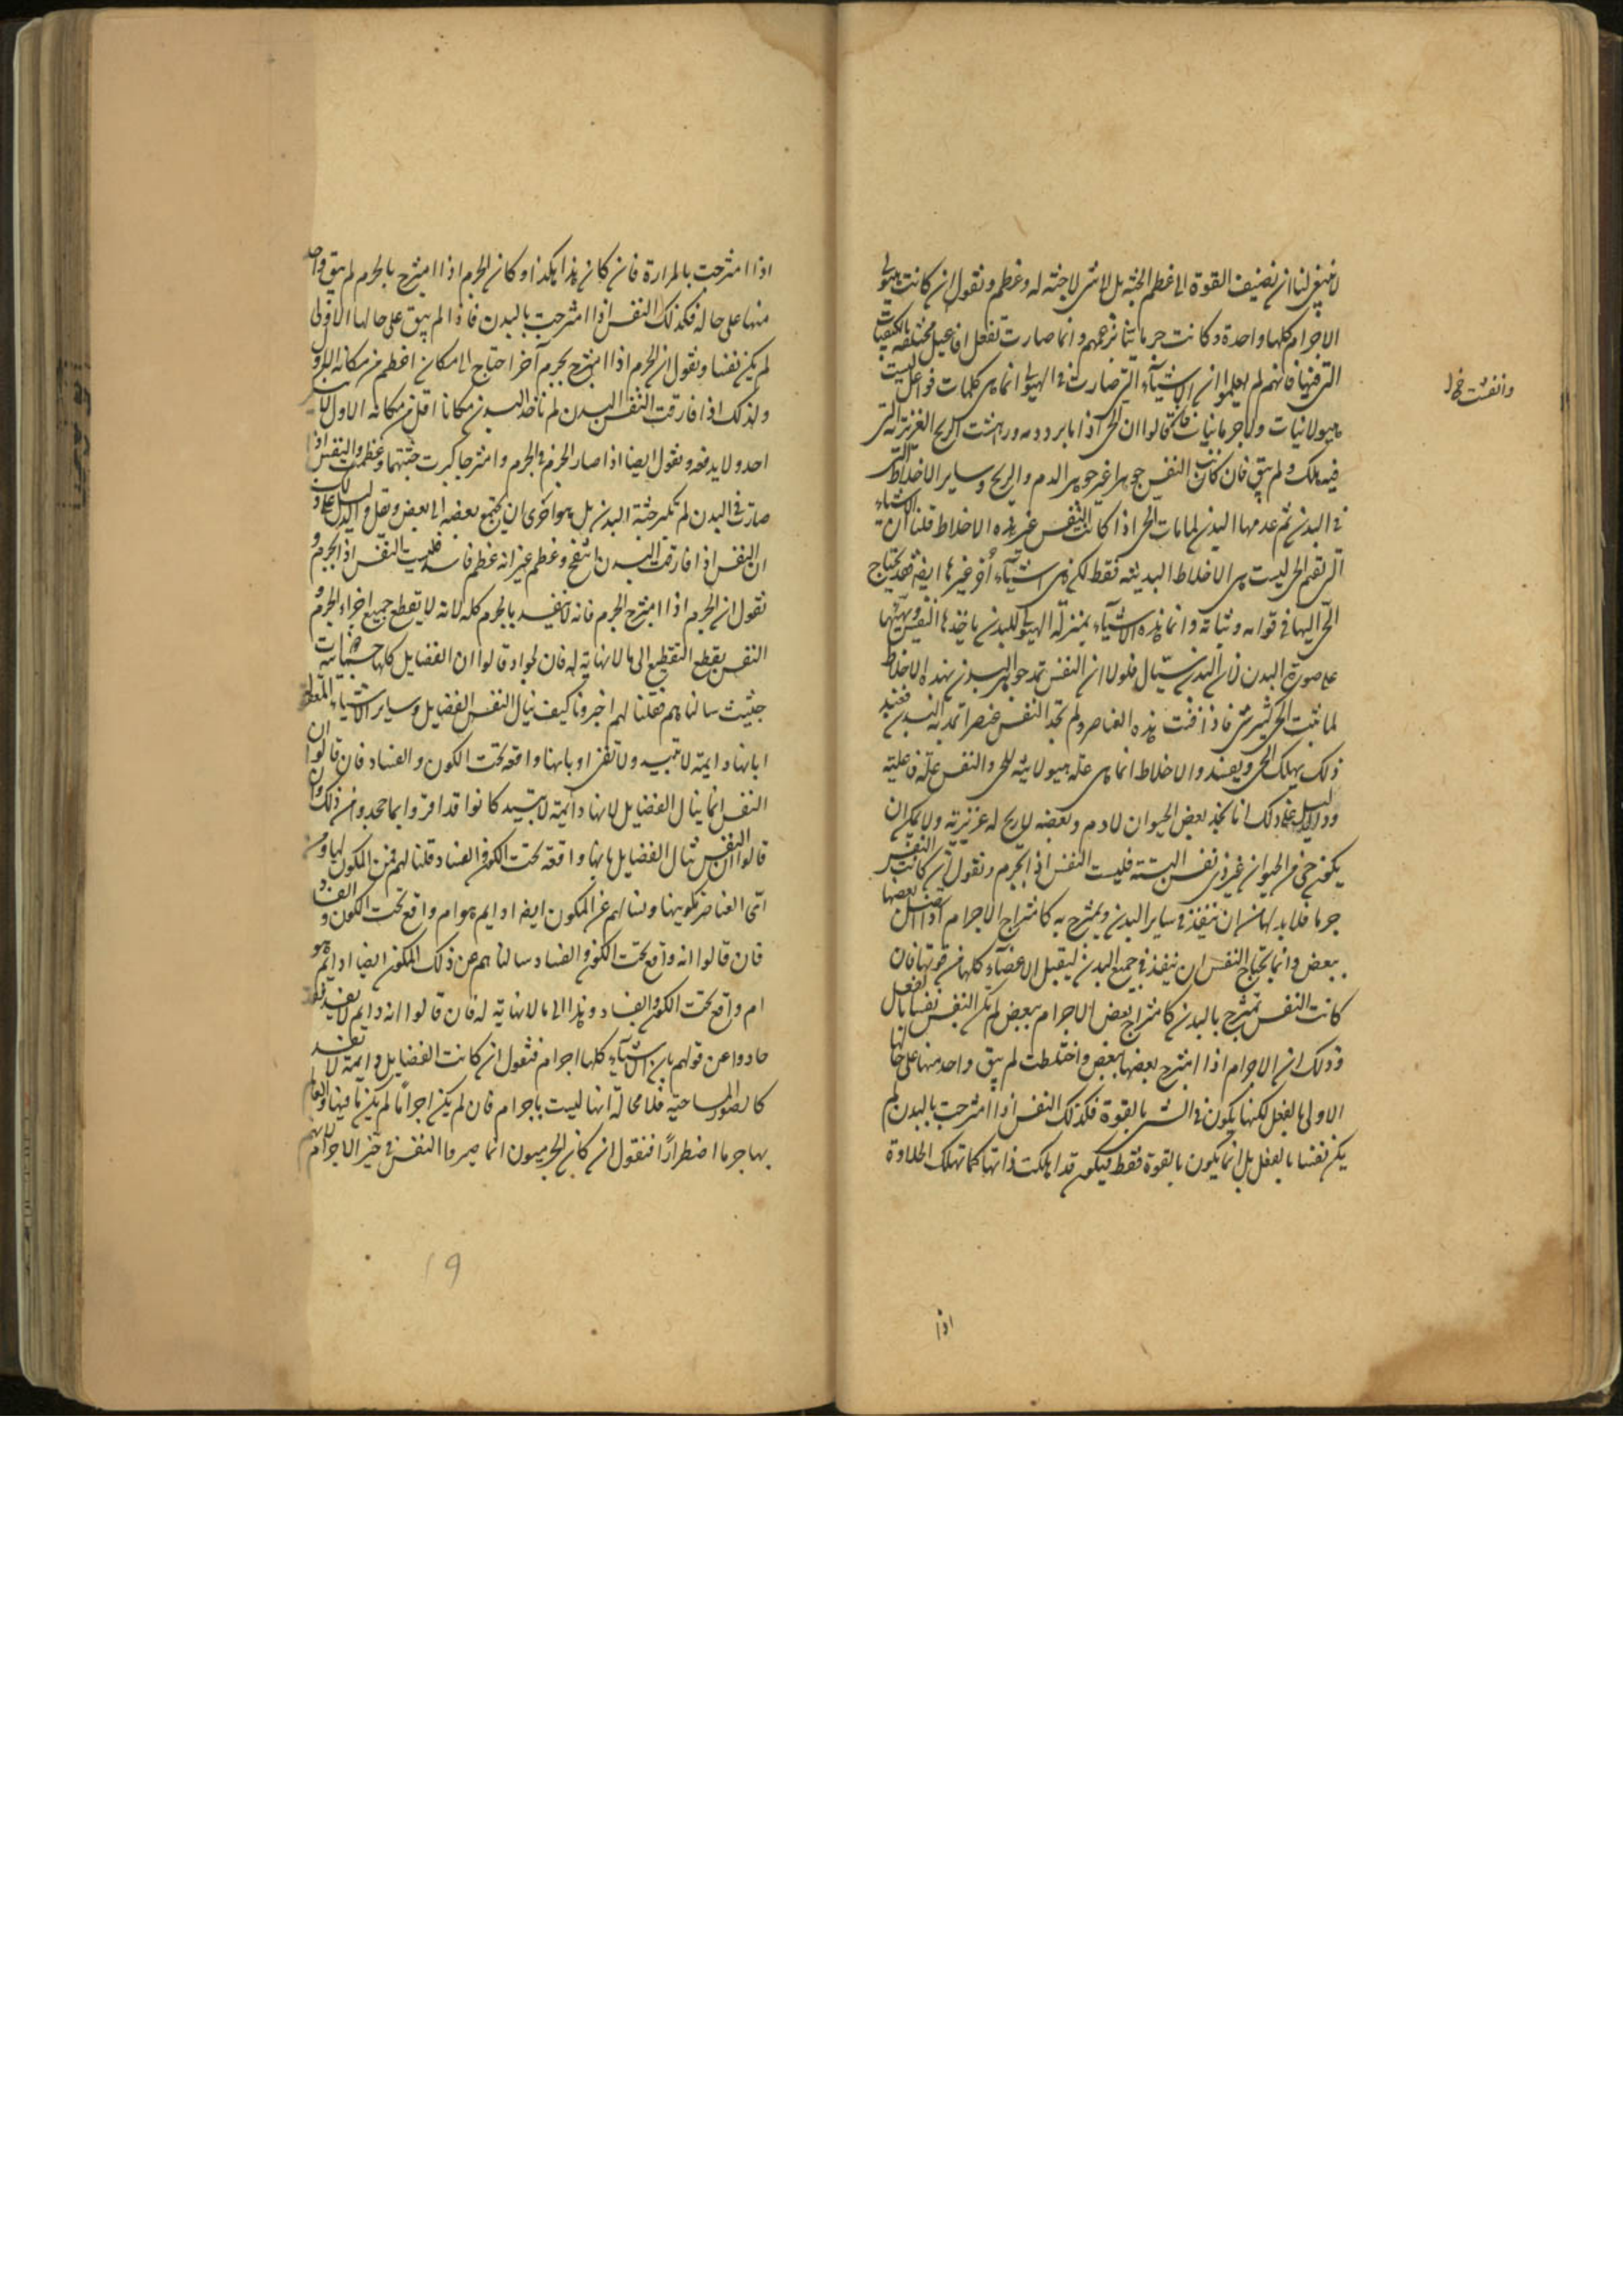 لا ينبغي لنا ان نضيف القوة الى عظم الجثة بل لاشئ لا جثة له وعظم ونقول ان كانت هيولى
الاجرام كلها واحدة وكانت جرما بزعمهم وانما صارت تفعل افاعيل مختلفة بالكيفيات
التى فيها فانهم لم يعلموا ان الاشياء التى صارت فى الهيولى انما هى كلمات فواعل ليست
هيولانيات ولا جرمانيات فان قالوا ان الحى اذا ما برد دمه وانفشت الريح الغريزية التى
فيه هلك ولم يبق فان كانت النفس جوهرا غير جوهر الدم والريح وساير الاخلاط التى
فى البدن ثم عدمها البدن لما مات الحى اذا كانت النفس غير هذه الاخلاط قلنا ان الاشياء
التى تقيم الحى ليست هى الاخلاط البدنية فقط لكن هى اشياء اُخر غيرها ايضا قد يحتاج
الحى اليها فى قوامه وثباته وانما هذه الاشياء بمنزلة الهيولى للبدن ياخذها النفس ويهيئها
على صورة البدن لان البدن سيّال فلولا ان النفس تمد جوهر البدن بهذه الاخلاط
لما ثبت الحى كثير شئ فاذا فنت هذه العناصر ولم تجد النفس عنصرا تمد به البدن فعند
ذلك يهلك الحى ويفسد والاخلاط انما هى علة هيولانية للحى والنفس علة فاعلية
والدليل على ذلك انا نجد بعض الحيوان لا دم وبعضه لا ريح له غريزية ولا يمكن ان
يكون حى من الحيوان غير ذى نفس البتة فليست النفس اذاً بجرم ونقول ان كانت النفس
جرما فلا بد لها من ان تنفذ فى ساير البدن وتمتزج به كامتزاج الاجرام اذا اتصل بعضها
ببعض وانما تحتاج النفس ان تنفذ فى جميع البدن ليقبل الاعضاء كلها من قوتها فان
كانت النفس تمتزج بالبدن كامتزاج بعض الاجرام ببعض لم يكن النفس نفسا بالفعل
وذلك ان الاجرام اذا امتزج بعضها ببعض واختلطت لم يبق واحد منها على حالها
الاولى بالفعل لكنها يكون فى الشئ بالقوة فكذلك النفس اذا امتزجت بالبدن لم
يكن نفسا بالفعل بل انما يكون بالقوة فقط فيكون قد اهلكت ذاتها كما تهلك الحلاوة
وانفشت خ ل
اذا
اذا امتزجت بالمرارة فان كان هذا هكذا وكان الجرم اذا امتزج بالجرم لم يبق واحد
منها على حاله فكذلك النفس اذا امتزجت بالبدن فاذا لم يبق على حالها الاولى
لم يكن نفسا ونقول ان الجرم اذا امتزج بجرم آخر احتاج الى مكان اعظم من مكانه الاول
ولذلك اذا فارقت النفس البدن لم ياخذ البدن مكانا اقل من مكانه الاول
احد ولا يدفعه ونقول ايضا اذا صار الجرم فى الجرم وامتزجا كبرت جثتهما وعظمت والنفس اذا
صارت فى البدن لم تكبر جثة البدن بل هو احرى ان يجتمع بعضه الى بعض ويقل والدليل على ذلك
ان النفس اذا فارقت البدن انتفخ وعظم غير انه عظم فاسد فليست النفس اذاً بجرم و
نقول ان الجرم اذا امتزج بالجرم فانه لا ينفذ بالجرم كله لانه لا يقطع جميع اجزاء الجرم و
النفس يقطع التقطيع الى ما لا نهاية له فان لجوا وقالوا ان الفضايل كلها جثيات
جثيت سالناهم فقلنا لهم اخبرونا كيف ينال النفس الفضايل وساير الاشياء
ابانها دايمة لا تبيد ولا تفنى او بانها واقعة تحت الكون والفساد فان قالوا ان
النفس انما ينال الفضايل لانها دائمة لا تبيد كانوا قد اقروا بما جحدوا من ذلك وان
قالوا ان النفس تنال الفضايل بانها واقعة تحت الكون والفساد قلنا لهم فمن المكون لها ومن
اى العناصر تكوينها ونسالهم عن المكون ايضا ادايم هو ام واقع تحت الكون والفساد
فان قالوا انه واقع تحت الكون والفساد سالناهم عن ذلك المكون ايضا ادائم هو
ام واقع تحت الكون والفساد وهذا الى ما لا نهاية له فان قالوا انه دايم لا يفسد
حادوا عن قولهم بان الاشياء كلها اجرام فنقول ان كانت الفضايل دايمة لا تفسد
كالصور المساحية فلا محالة انها ليست باجرام فان لم يكن اجراما لم يكن ما فيها والعالم
بها جرما اضطرارًا فنقول ان كان الجرميون انما صيروا النفس فى حيز الاجرام لانهم
19